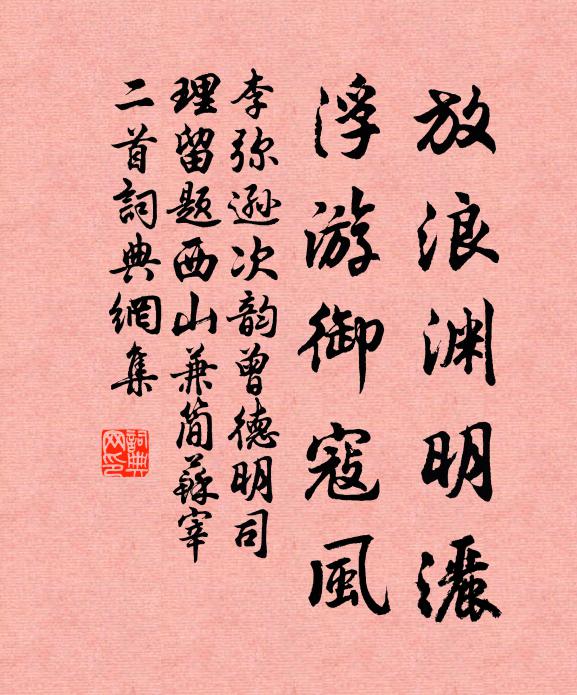 放浪渊明灑
浮游御寇風
李弥遜次韵曾德明司
理留题西山兼简蘇宰
二首詞典網集
詞典网印